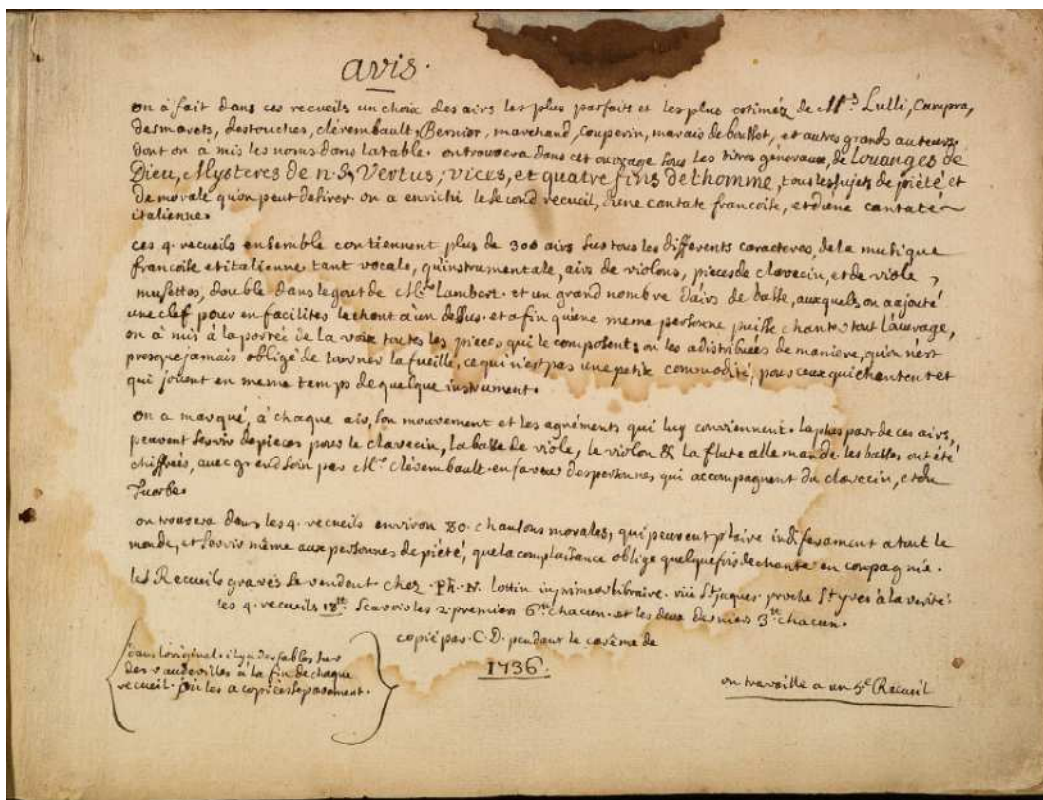 avis.
on à fait dans ces recueils un choix des airs les plus parfaits et les plus estiméz de Mrs Lulli, Campra,
desmarets, destouches, clérembault, Bernier, marchand, couperin, marais de bousset, et autres grands auteurs
dont on à mis les noms dans la table. on trouvera dans cet ouvrage sous les titres généraux, de Louanges de
Dieu, Mysteres de n. S, Vertus, vices, et quatre fins de lhomme, tous les sujets de piété et
de morale qu'on peut desirer. on a enrichi le second recueil, d'une cantate francoise, et d'une cantate
italienne.
ces 4. recueils ensemble contiennent plus de 300 airs sur tous les différents caracteres, de la musique
francoise et italienne tant vocale, qu'instrumentale, airs de violons, pieces de clavecin, et de viole,
musettes, double dans le gout de Mr Lambert. et un grand nombre d'airs de basse, auxquels on a ajouté
une clef pour en faciliter le chant à un dessus. et afin qu'une meme personne puisse chanter tout l'ouvrage,
on à mis à la portée de la voix toutes les pieces qui le composent; on les a distribuées de maniere, qu'on n'est
presque jamais obligé de turner la fueille, ce qui n'est pas une petite commodité, pour ceux qui chantent et
qui joüent en meme temps de quelque instrument.
on a marqué, à chaque air, son mouvement et les agréments qui luy conviennent. la plus part de ces airs,
peuvent servir de pieces pour le clavecin, la basse de viole, le violon & la flute allemande. les basses ont été
chiffrées, avec grand soin par Mr Clérembault en faveur des personnes qui accompagnent du clavecin, et du
Tuorbe.
on trouvera dans les 4. recueils environ 80. chansons morales, qui peuvent plaire indiferament a tout le
monde, et servir même aux personnes de piété, que la complaisance oblige quelquefois de chanter en conpagnie.
les Recueils gravés se vendent chez Ph. N. lottin inprimeur libraire. rüe St jaques proche St yves à la verité.
les 4. recueils 18tt. Scavoir les 2. premiers 6tt chacun. et les deux derniers 3tt chacun.
copié par C. D. pendant le carême de
1736.
dans l'original. il y a des fables sur
des vaudevilles à la fin de chaque
recueil. on les a copiés séparement.
on travaille a un 5e Recueil